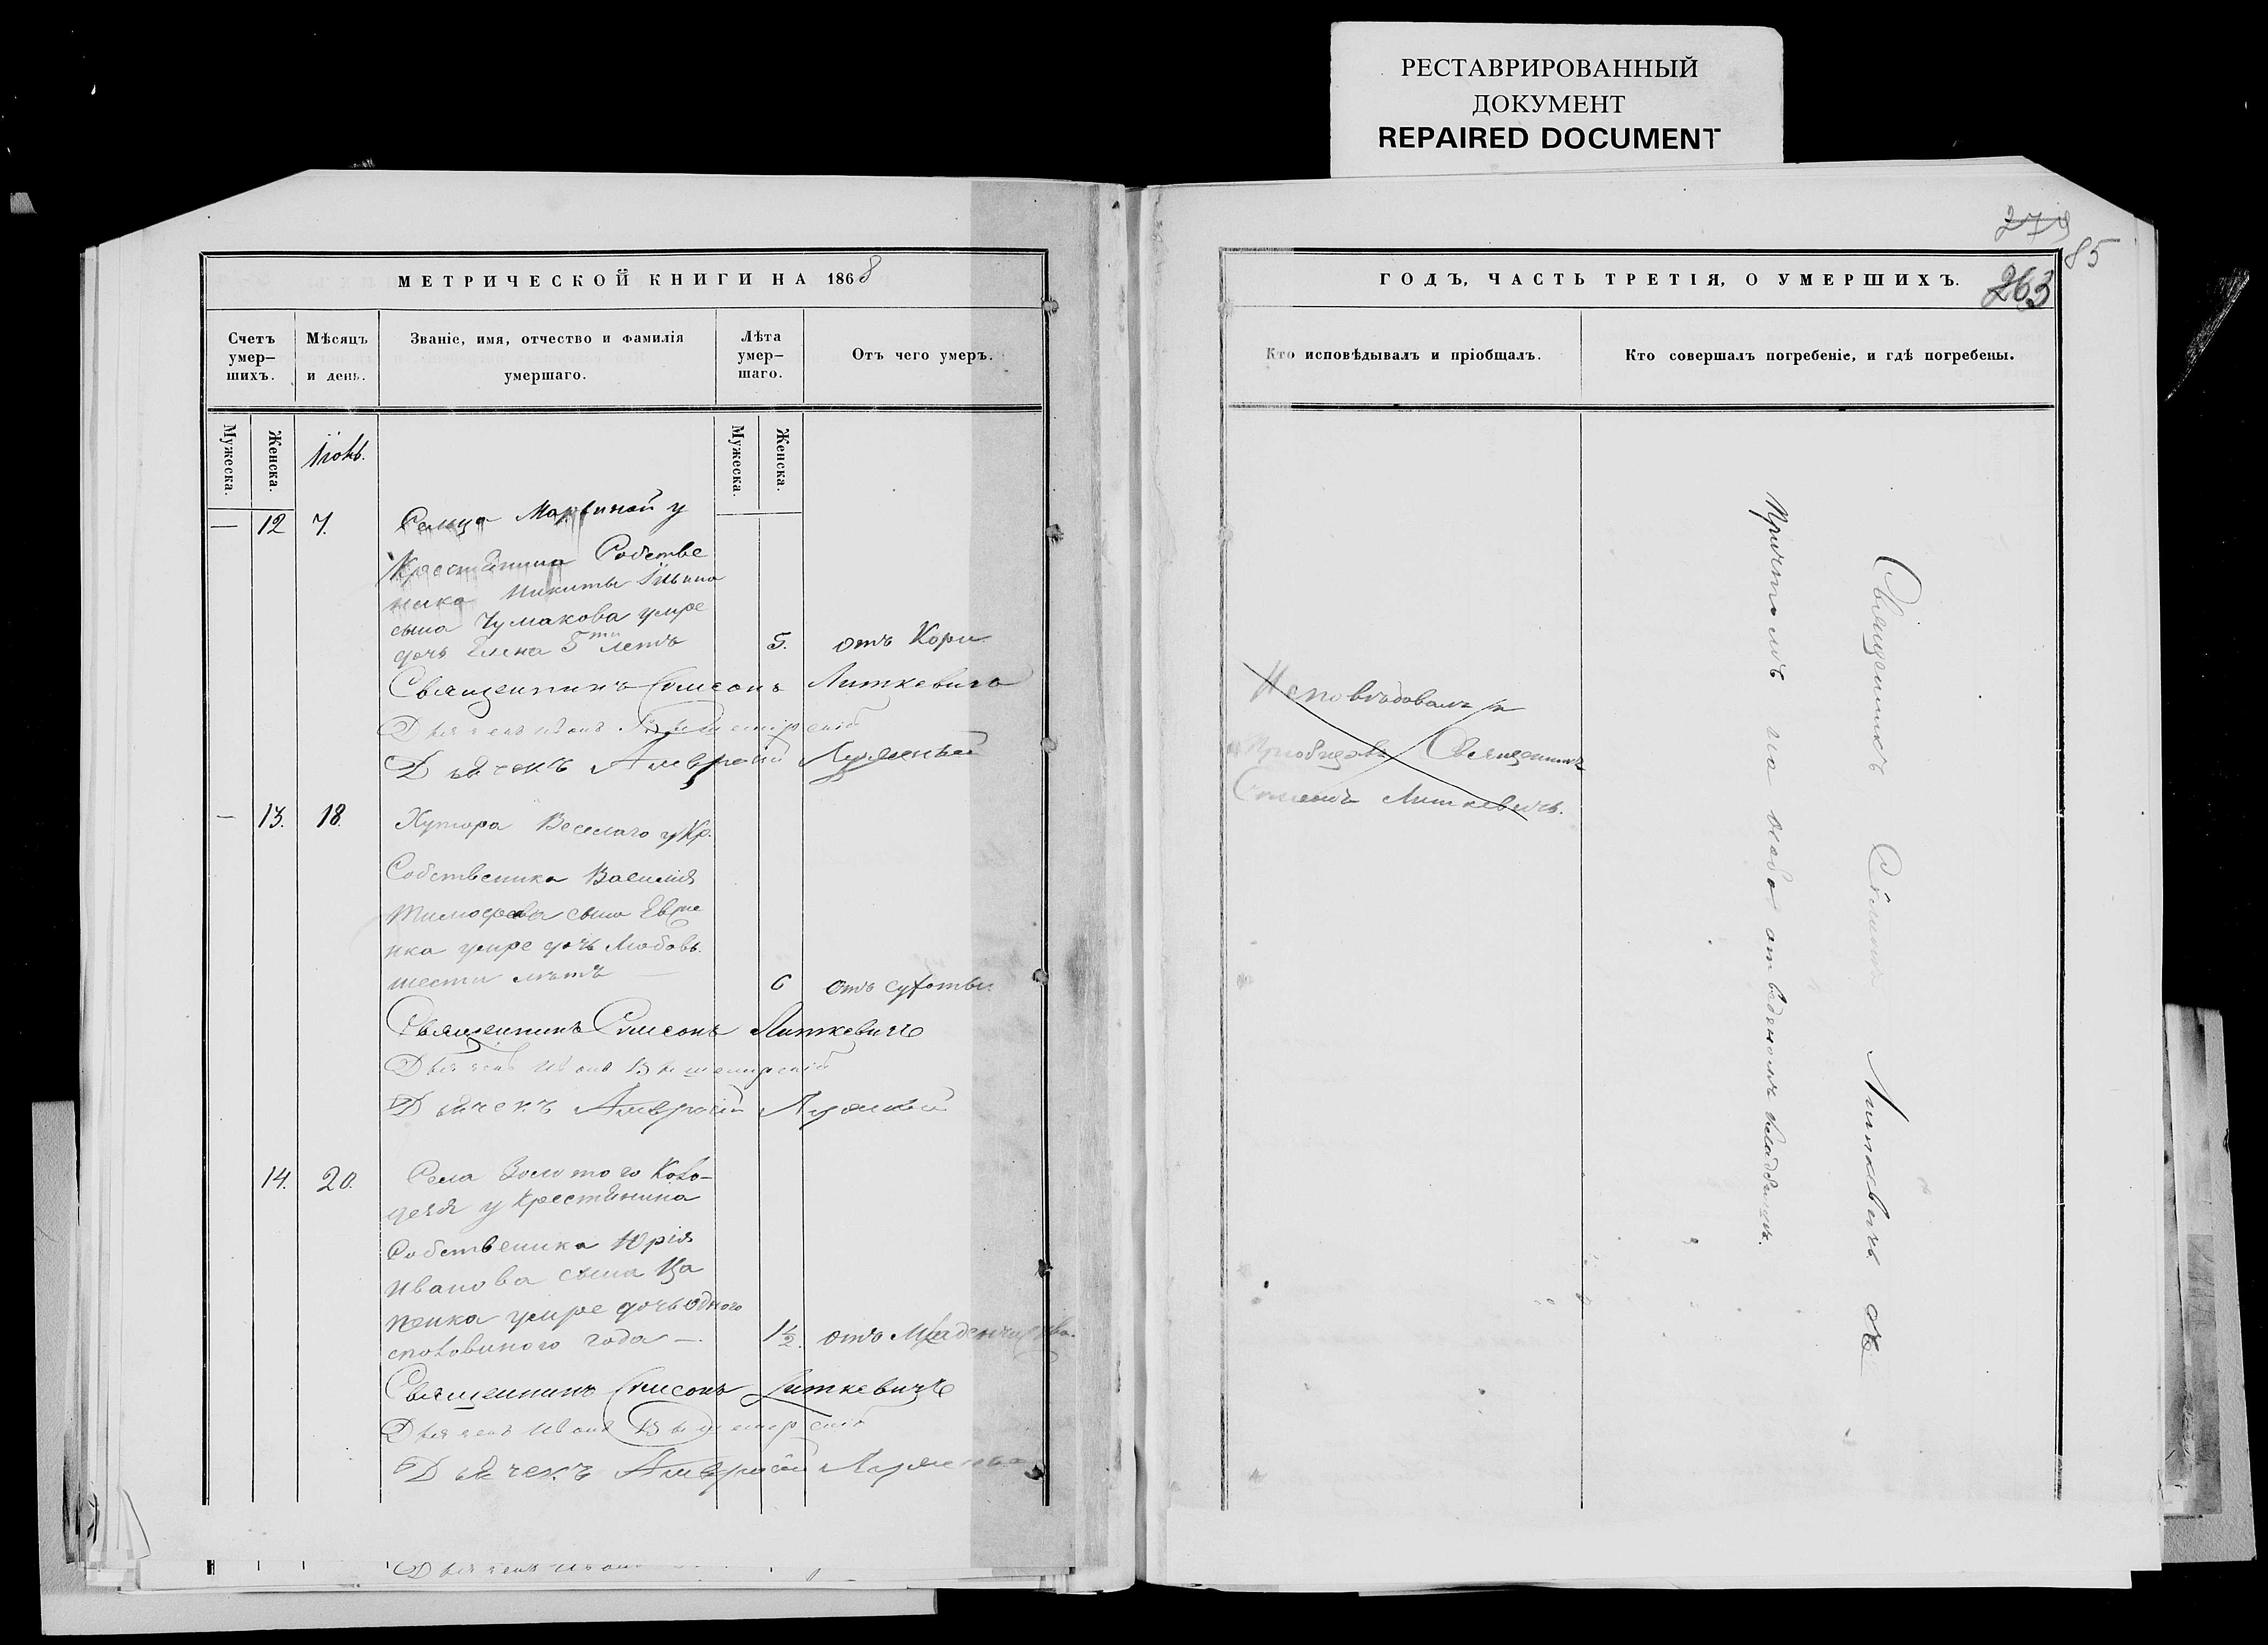 РЕСТАВРИРОВАННЫЙ
ДОКУМЕНТ
REPAIRED DOCUMENT
МЕТРИЧЕСКОЙ КНИГИ НА 1868
Счетъ умер-шихъ.
Мѣсяцъ и день.
Званіе, имя, отчество и фамилія умершаго.
Лѣта умер-шаго.
Отъ чего умеръ.
Мужеска.
Женска.
Іюнь.
Мужеска.
Женска.
— 12 7. Сельца Марьиной у
Крестьянина Собстве
ника Никиты Ильина
сына Чумакова умре
дочь Елена 5ти летъ 5. отъ Кори
Священникъ Симеонъ Литкевичъ
Дьячекъ Иванъ
Дьячекъ Амвросій
— 13. 18. Хутора Веселаго у Кр.
Собственика Василія
Тимофеева сына Евме
нка умре дочь Любовь
шести лѣтъ — 6 отъ сухотвы
Священникъ Симеонъ Литкевичъ
Дьячекъ Иванъ
Дьячекъ Амвросій
14. 20. Села Золотого Коло-
дезя у Крестьянина
Собственика Юрія
Иванова сына Ца
пенка умре дочь одного
споловиного года —. 1½. отъ Младенчества.
Священникъ Симеонъ Литкевичъ
Дьячекъ Иванъ
Дьячекъ Амвросій
Дьячекъ Иванъ
279
85
263
ГОДЪ, ЧАСТЬ ТРЕТІЯ, О УМЕРШИХЪ.
Кто исповѣдывалъ и пріобщалъ.
Кто совершалъ погребеніе, и гдѣ погребены.
Исповѣдовалъ и
Приобщалъ Священникъ
Симеонъ Литкевичъ.
Священникъ Симеонъ Литкевичъ съ
Причтомъ на особо отведеномъ кладбищѣ.